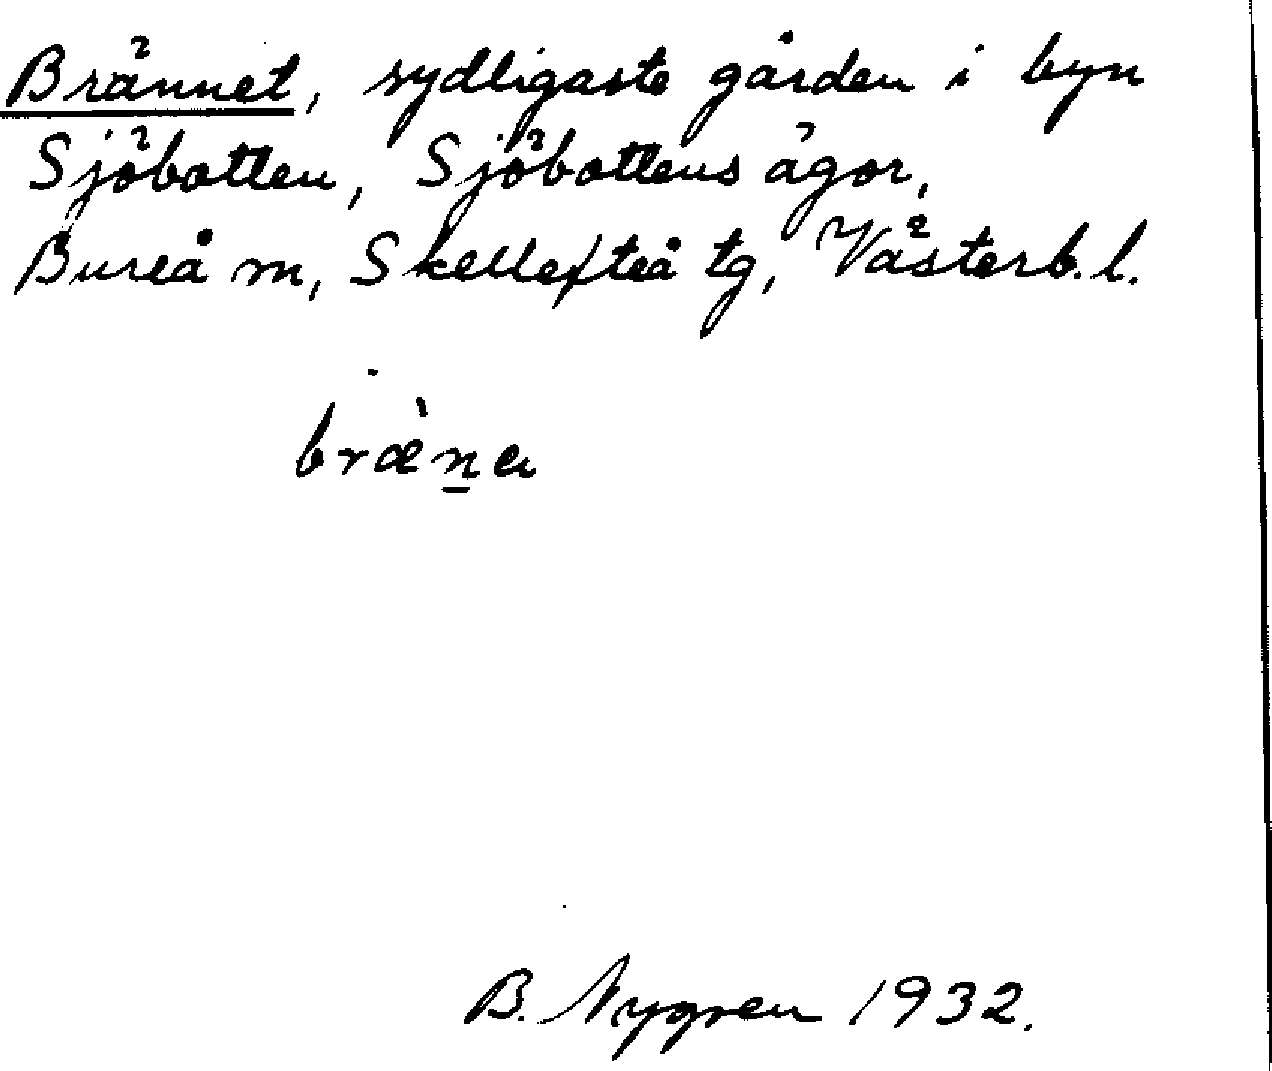 Brännet, sydligaste gården i byn
Sjöbotten, Sjöbottens ägor,
Bureå m, Skellefteå tg, Västerb. l.
bræ̀n̲a
B. Nygren 1932.